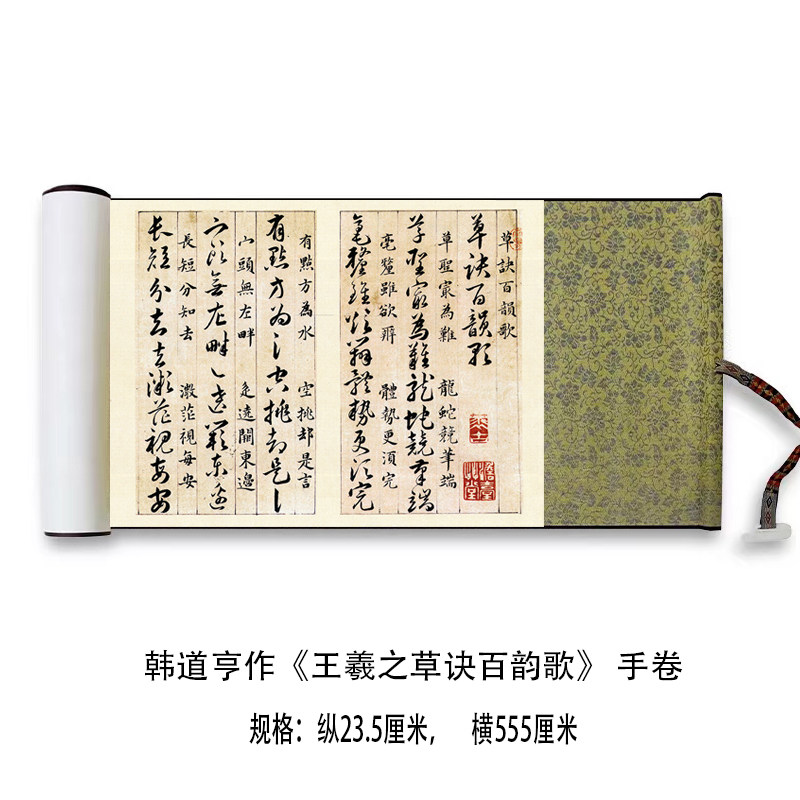 草訣百韻歌
草訣百韻歌
草聖冣為難 龍蛇競筆端
草聖冣為難龍蛇競筆端
毫釐雖欲辨 體勢更須完
毫釐雖欲辨體勢更須完
有點方為水 空挑却是言
有點方為水空挑却是言
山頭無左畔 辵遶闕東邊
山頭無左畔辵遶闕東邊
長短分知去 微茫視每安
長短分知去微茫視每安
韩道亨作《王羲之草诀百韵歌》 手卷
规格：纵23.5厘米， 横555厘米